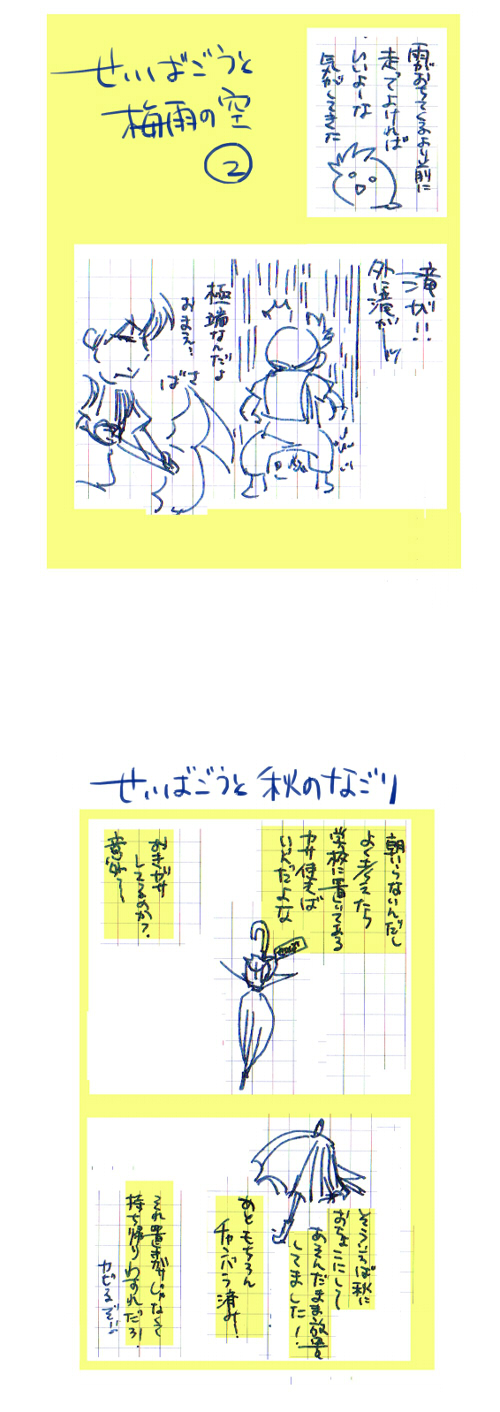 せいばごうと
梅雨の空
②
雨がおちてくるより前に
走ってよければ
いいよーな
気がしてきた
滝が!!
外に滝がーッ
極端なんだよ
おまえ…
ばさ
せいばごうと 秋のなごり
朝いらないんだし
よく考えたら
学校に置いてある
カサ使えば
いいんだよな
おきガサ
してるのか?
意外〜
そういえば秋に
おちょこにして
あそんだまま放置を
してました!
あともちろん
チャンバラ済み!
それ置きガサじゃなくて
持ち帰りわすれだろ!
カビるぞ!!